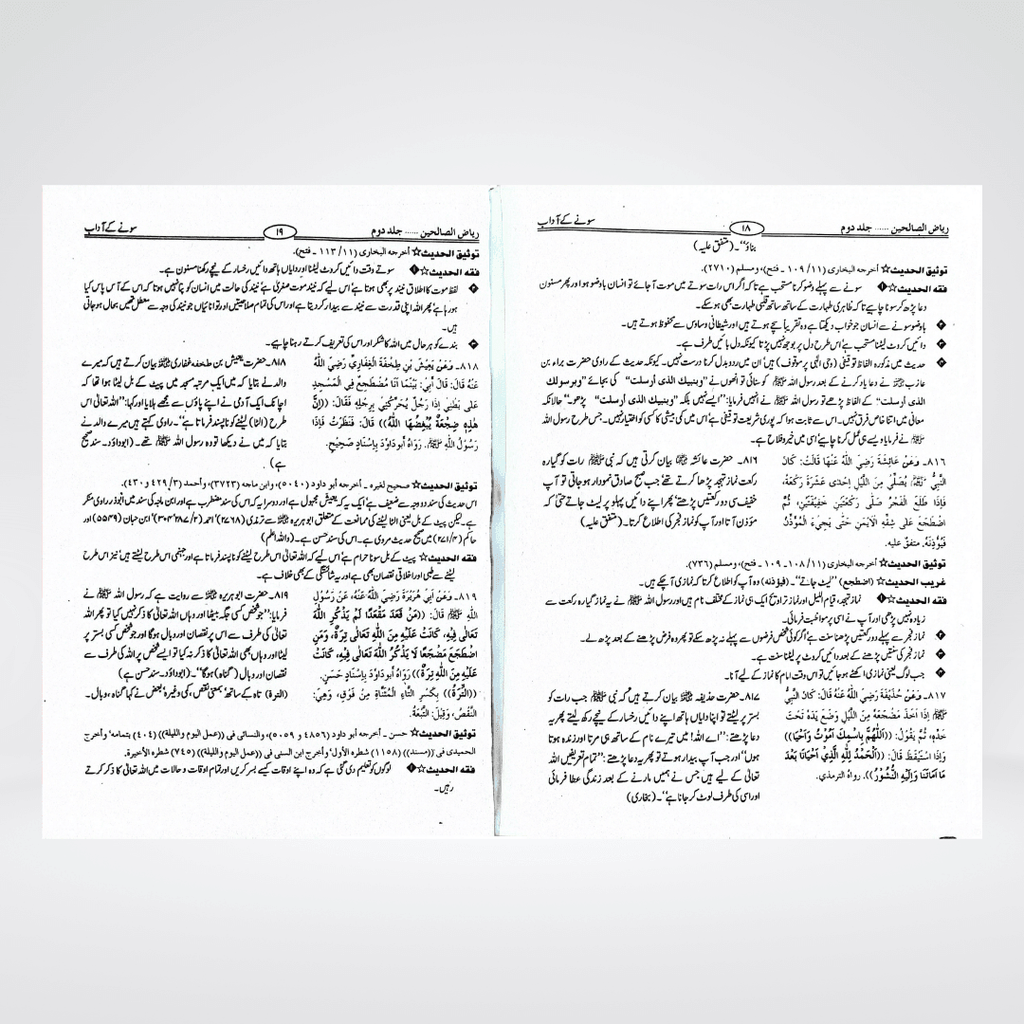 ریاض الصالحین ...... جلد دوم ۱۸ سونے کے آداب
بناؤ‘‘۔ (متفق علیہ)
توثیق الحدیث☆ أخرجه البخاری (۱۱/ ۱۰۹ ۔ فتح)، ومسلم (۲۷۱۰).
فقه الحدیث☆ ❶ سونے سے پہلے وضو کرنا مستحب ہے تاکہ اگر اس رات سوتے میں موت آ جائے تو انسان باوضو ہو اور پھر مسنون
دعا پڑھ کر سونا چاہیے تاکہ ظاہری طہارت کے ساتھ ساتھ قلبی طہارت بھی ہو سکے۔
❷ باوضو سونے سے انسان جو خواب دیکھتا ہے وہ تقریباً سچے ہوتے ہیں اور شیطانی وساوس سے محفوظ ہوتے ہیں۔
❸ دائیں کروٹ لیٹنا مستحب ہے اس طرح دل پر بوجھ نہیں پڑتا کیونکہ دل بائیں طرف ہے۔
❹ حدیث میں مذکورہ الفاظ توقیفی (وحی الٰہی پر موقوف) ہیں ان میں ردو بدل کرنا درست نہیں۔ کیونکہ حدیث کے راوی حضرت براء بن
عازب نے دعا یاد کرنے کے بعد رسول اللہ ﷺ کو سنائی تو انھوں نے ’’ونبیك الذی أرسلت‘‘ کی بجائے ’’وبرسولك
الذی أرسلت‘‘ کے الفاظ پڑھے تو رسول اللہ ﷺ نے انہیں فرمایا: ’’ایسے نہیں بلکہ ’’ونبیك الذی أرسلت‘‘ پڑھو۔‘‘ حالانکہ
معانی میں اتنا خاص فرق نہیں۔ اس سے ثابت ہوا کہ پوری شریعت توقیفی ہے اس میں کمی بیشی کا کسی کو اختیار نہیں۔ جس طرح رسول اللہ
ﷺ نے فرمایا ویسے ہی عمل کرنا چاہیے اسی میں خیر و فلاح ہے۔
۸۱۶۔ وَعَنْ عَائِشَةَ رَضِيَ اللَّهُ عَنْهَا قَالَتْ: كَانَ
النَّبِيُّ ﷺ يُصَلِّي مِنَ اللَّيْلِ إِحْدَى عَشْرَةَ رَكْعَةً،
فَإِذَا طَلَعَ الْفَجْرُ صَلَّى رَكْعَتَيْنِ خَفِيفَتَيْنِ، ثُمَّ
اضْطَجَعَ عَلَى شِقِّهِ الْأَيْمَنِ حَتَّى يَجِيءَ الْمُؤَذِّنُ
فَيُؤْذِنَهُ. متفق عليه.
۸۱۶۔ حضرت عائشہ بیان کرتی ہیں کہ نبی ﷺ رات کو گیارہ
رکعت نماز تہجد پڑھا کرتے تھے جب صبح صادق نمودار ہو جاتی تو آپ
خفیف سی دو رکعتیں پڑھتے‘ پھر اپنے دائیں پہلو پر لیٹ جاتے حتی کہ
مؤذن آتا اور آپ کو نماز فجر کی اطلاع کرتا۔ (متفق علیہ)
توثیق الحدیث☆ أخرجه البخاری (۱۱/ ۱۰۸۔ ۱۰۹ ۔ فتح)، ومسلم (۷۳۶).
غریب الحدیث☆ (اضطجع) ’’لیٹ جاتے‘‘۔ (فیؤذنه) وہ آپ کو اطلاع کرتا کہ نمازی آ چکے ہیں۔
فقه الحدیث☆ ❶ نماز تہجد، قیام اللیل اور نماز تراویح ایک ہی نماز کے مختلف نام ہیں اور رسول اللہ ﷺ نے یہ نماز گیارہ رکعت سے
زیادہ نہیں پڑھی اور آپ نے اسی پر مواظبت فرمائی۔
❷ نماز فجر سے پہلے دو رکعتیں پڑھنا سنت ہے اگر کوئی شخص فرضوں سے پہلے نہ پڑھ سکے تو پھر وہ فرض پڑھنے کے بعد پڑھ لے۔
❸ نماز فجر کی سنتیں پڑھنے کے بعد دائیں کروٹ پر لیٹنا سنت ہے۔
❹ جب لوگ یعنی نمازی اکٹھے ہو جائیں تو اس وقت امام کا نماز کے لیے آنا۔
۸۱۷۔ وَعَنْ حُذَيْفَةَ رَضِيَ اللَّهُ عَنْهُ قَالَ: كَانَ النَّبِيُّ
ﷺ إِذَا أَخَذَ مَضْجَعَهُ مِنَ اللَّيْلِ وَضَعَ يَدَهُ تَحْتَ
خَدِّهِ، ثُمَّ يَقُولُ: ((اللَّهُمَّ بِاسْمِكَ أَمُوتُ وَأَحْيَا))
وَإِذَا اسْتَيْقَظَ قَالَ: ((الْحَمْدُ لِلَّهِ الَّذِي أَحْيَانَا بَعْدَ
مَا أَمَاتَنَا وَإِلَيْهِ النُّشُورُ)). رواه الترمذي.
۸۱۷۔ حضرت حذیفہ بیان کرتے ہیں کہ نبی ﷺ جب رات کو
بستر پر لیٹتے تو اپنا دایاں ہاتھ اپنے دائیں رخسار کے نیچے رکھ لیتے پھر یہ
دعا پڑھتے: ’’اے اللہ! میں تیرے نام کے ساتھ ہی مرتا اور زندہ ہوتا
ہوں‘‘ اور جب آپ بیدار ہوتے تو پھر یہ دعا پڑھتے: ’’تمام تعریفیں اللہ
تعالیٰ کے لیے ہیں جس نے ہمیں مارنے کے بعد زندگی عطا فرمائی
اور اسی کی طرف لوٹ کر جانا ہے‘‘۔ (بخاری)
ریاض الصالحین ...... جلد دوم ۱۹ سونے کے آداب
توثیق الحدیث☆ أخرجه البخاری (۱۱/ ۱۱۳ ۔ فتح).
فقه الحدیث☆ ❶ سوتے وقت دائیں کروٹ لیٹنا اور دایاں ہاتھ دائیں رخسار کے نیچے رکھنا مسنون ہے۔
❷ لفظ موت کا اطلاق نیند پر بھی ہوتا ہے‘ اس لیے کہ نیند موت صغریٰ ہے‘ نیند کی حالت میں انسان کو پتا نہیں ہوتا کہ اس کے آس پاس کیا
ہو رہا ہے‘ پھر اللہ اپنی قدرت سے نیند سے بیدار کر دیتا ہے اور اس کی تمام صلاحیتیں اور توانائیاں جو نیند کی وجہ سے معطل تھیں بحال ہو جاتی
ہیں۔
❸ بندے کو ہر حال میں اللہ کا شکر اور اس کی تعریف کرتے رہنا چاہیے۔
۸۱۸۔ وَعَنْ يَعِيشَ بْنِ طِخْفَةَ الْغِفَارِيِّ رَضِيَ اللَّهُ
عَنْهُ قَالَ: قَالَ أَبِي: بَيْنَمَا أَنَا مُضْطَجِعٌ فِي الْمَسْجِدِ
عَلَى بَطْنِي إِذَا رَجُلٌ يُحَرِّكُنِي بِرِجْلِهِ فَقَالَ: ((إِنَّ
هَذِهِ ضِجْعَةٌ يُبْغِضُهَا اللَّهُ)) قَالَ: فَنَظَرْتُ فَإِذَا
رَسُولُ اللَّهِ ﷺ. رَوَاهُ أَبُو دَاوُدَ بِإِسْنَادٍ صَحِيحٍ.
۸۱۸۔ حضرت یعیش بن طخفہ غفاری بیان کرتے ہیں کہ میرے
والد نے بتایا کہ میں ایک مرتبہ مسجد میں پیٹ کے بل لیٹا ہوا تھا کہ
اچانک ایک آدمی نے اپنے پاؤں سے مجھے ہلایا اور کہا: ’’اللہ تعالیٰ اس
طرح (الٹا) لیٹنے کو ناپسند فرماتا ہے‘‘۔ راوی کہتے ہیں میرے والد نے
بتایا کہ میں نے دیکھا تو وہ رسول اللہ ﷺ تھے۔ (ابوداؤد۔ سند صحیح
ہے)
توثیق الحدیث☆ صحیح لغیره ۔ أخرجه أبو داود (۵۰۴۰) وابن ماجه (۳۷۲۳) وأحمد (۳/ ۴۲۹ و ۴۳۰).
اس حدیث کی سند دو وجہ سے ضعیف ہے‘ ایک یہ کہ یعیش مجہول ہے اور دوسرا یہ کہ اس کی سند مضطرب ہے اور ابن ماجہ کی سند میں ابوذر راوی منکر
ہے۔ لیکن پیٹ کے بل یعنی الٹا لیٹنے کی ممانعت کے متعلق ابو ہریرہ سے ترمذی (۲۷۶۸) احمد ابن حبان (۵۵۴۹)
حاکم (۴/ ۲۷۱) میں صحیح حدیث مروی ہے۔ اس کی سند حسن ہے۔ (واللہ اعلم)
فقه الحدیث☆ پیٹ کے بل سونا حرام ہے اس لیے کہ اللہ تعالیٰ اس طرح لیٹنے کو ناپسند فرماتا ہے اور جہنمی اس طرح لیٹتے ہیں نیز اس طرح
لیٹنے سے طبی اور اخلاقی نقصان بھی ہے اور یہ شائستگی کے بھی خلاف ہے۔
۸۱۹۔ وَعَنْ أَبِي هُرَيْرَةَ رَضِيَ اللَّهُ عَنْهُ، عَنْ رَسُولِ
اللَّهِ ﷺ قَالَ: ((مَنْ قَعَدَ مَقْعَدًا لَمْ يَذْكُرِ اللَّهَ
تَعَالَى فِيهِ، كَانَتْ عَلَيْهِ مِنَ اللَّهِ تَعَالَى تِرَةٌ، وَمَنِ
اضْطَجَعَ مَضْجَعًا لَا يَذْكُرُ اللَّهَ تَعَالَى فِيهِ، كَانَتْ
عَلَيْهِ مِنَ اللَّهِ تِرَةٌ)) رَوَاهُ أَبُو دَاوُدَ بِإِسْنَادٍ حَسَنٍ.
((التِّرَةُ)) بِكَسْرِ التَّاءِ الْمُثَنَّاةِ مِنْ فَوْقِ، وَهِيَ:
النَّقْصُ، وَقِيلَ: التَّبِعَةُ.
۸۱۹۔ حضرت ابو ہریرہ سے روایت ہے کہ رسول اللہ ﷺ نے
فرمایا: ’’جو شخص کسی جگہ بیٹھا اور وہاں اللہ تعالیٰ کا ذکر نہیں کیا تو پھر اللہ
تعالیٰ کی طرف سے اس پر نقصان اور وبال ہوگا اور جو شخص کسی بستر پر
لیٹا اور وہاں بھی اللہ تعالیٰ کا ذکر نہ کیا تو ایسے شخص پر اللہ کی طرف سے
نقصان و وبال (گناہ) ہوگا‘‘۔ (ابوداؤد۔ سند حسن ہے)
(الترۃ) تاء کے ساتھ بمعنی نقص، کمی وغیرہ‘ بعض نے کہا گناہ، وبال۔
توثیق الحدیث☆ حسن ۔ أخرجه أبو داود (۴۸۵۶ و ۵۰۵۹)، والنسائی فی ((عمل الیوم واللیلة)) (۴۰۴) بتمامه‘ وأخرج
الحمیدی فی ((مسند)) (۱۱۵۸) شطره الأول‘ وأخرج ابن السنی فی ((عمل الیوم واللیلة)) (۷۴۵) شطره الأخیرة.
فقه الحدیث☆ ❶ لوگوں کو تعلیم دی گئی ہے کہ وہ اپنے اوقات کیسے بسر کریں اور تمام اوقات و حالات میں اللہ تعالیٰ کا ذکر کرتے
رہیں۔